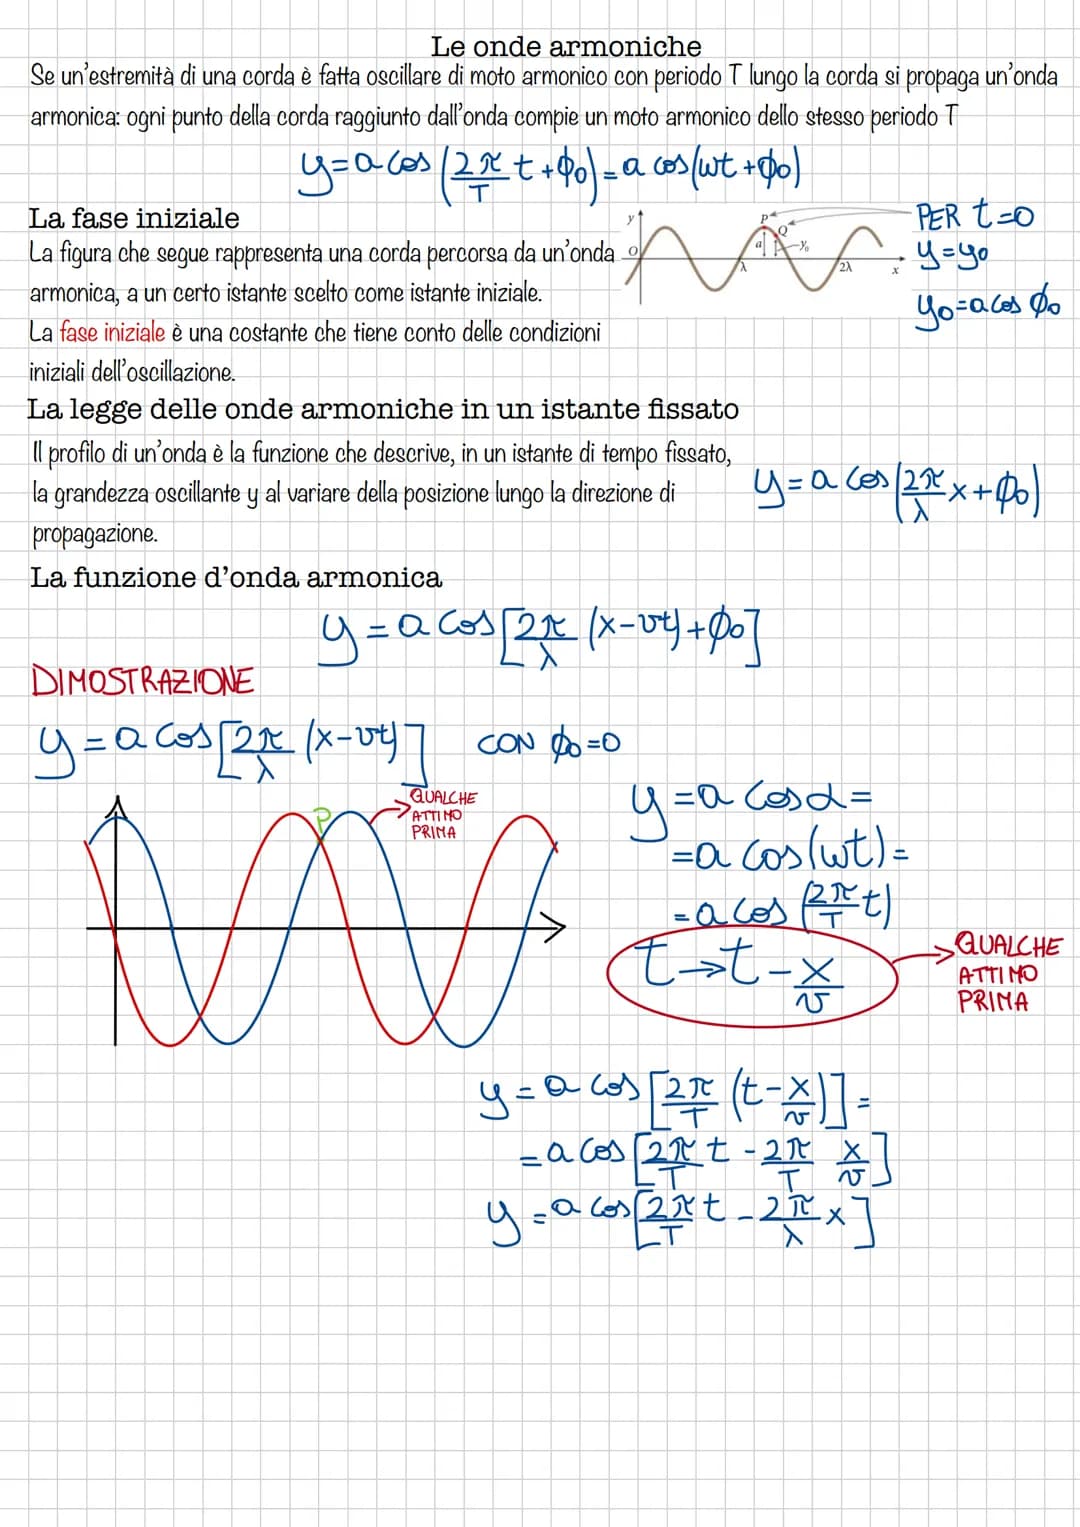 Le onde armoniche
Se un'estremità di una corda è fatta oscillare di moto armonico con periodo T lungo la corda si propaga un'onda
armonica: ogni punto della corda raggiunto dall'onda compie un moto armonico dello stesso periodo T
y=a cos(2π/T t+ϕ0)=a cos(ωt+ϕ0)
La fase iniziale
La figura che segue rappresenta una corda percorsa da un'onda
armonica, a un certo istante scelto come istante iniziale.
La fase iniziale è una costante che tiene conto delle condizioni
iniziali dell'oscillazione.
y
P
Q
O
a
y₀
λ
2λ
x
PER t=0
y=y0
y0=a cos ϕ0
La legge delle onde armoniche in un istante fissato
Il profilo di un'onda è la funzione che descrive, in un istante di tempo fissato,
la grandezza oscillante y al variare della posizione lungo la direzione di
propagazione.
y=a cos(2π/λ x+ϕ0)
La funzione d'onda armonica
y=a cos[2π/λ (x-vt)+ϕ0]
DIMOSTRAZIONE
y=a cos[2π/λ (x-vt)] CON ϕ0=0
P
QUALCHE
ATTIMO
PRIMA
y=a cosα=
=a cos(ωt)=
=a cos(2π/T t)
t→t-x/v
QUALCHE
ATTIMO
PRIMA
y=a cos[2π/T (t-x/v)]=
=a cos[2π/T t-2π/T x/v]
y=a cos[2π/T t-2π/λ x]